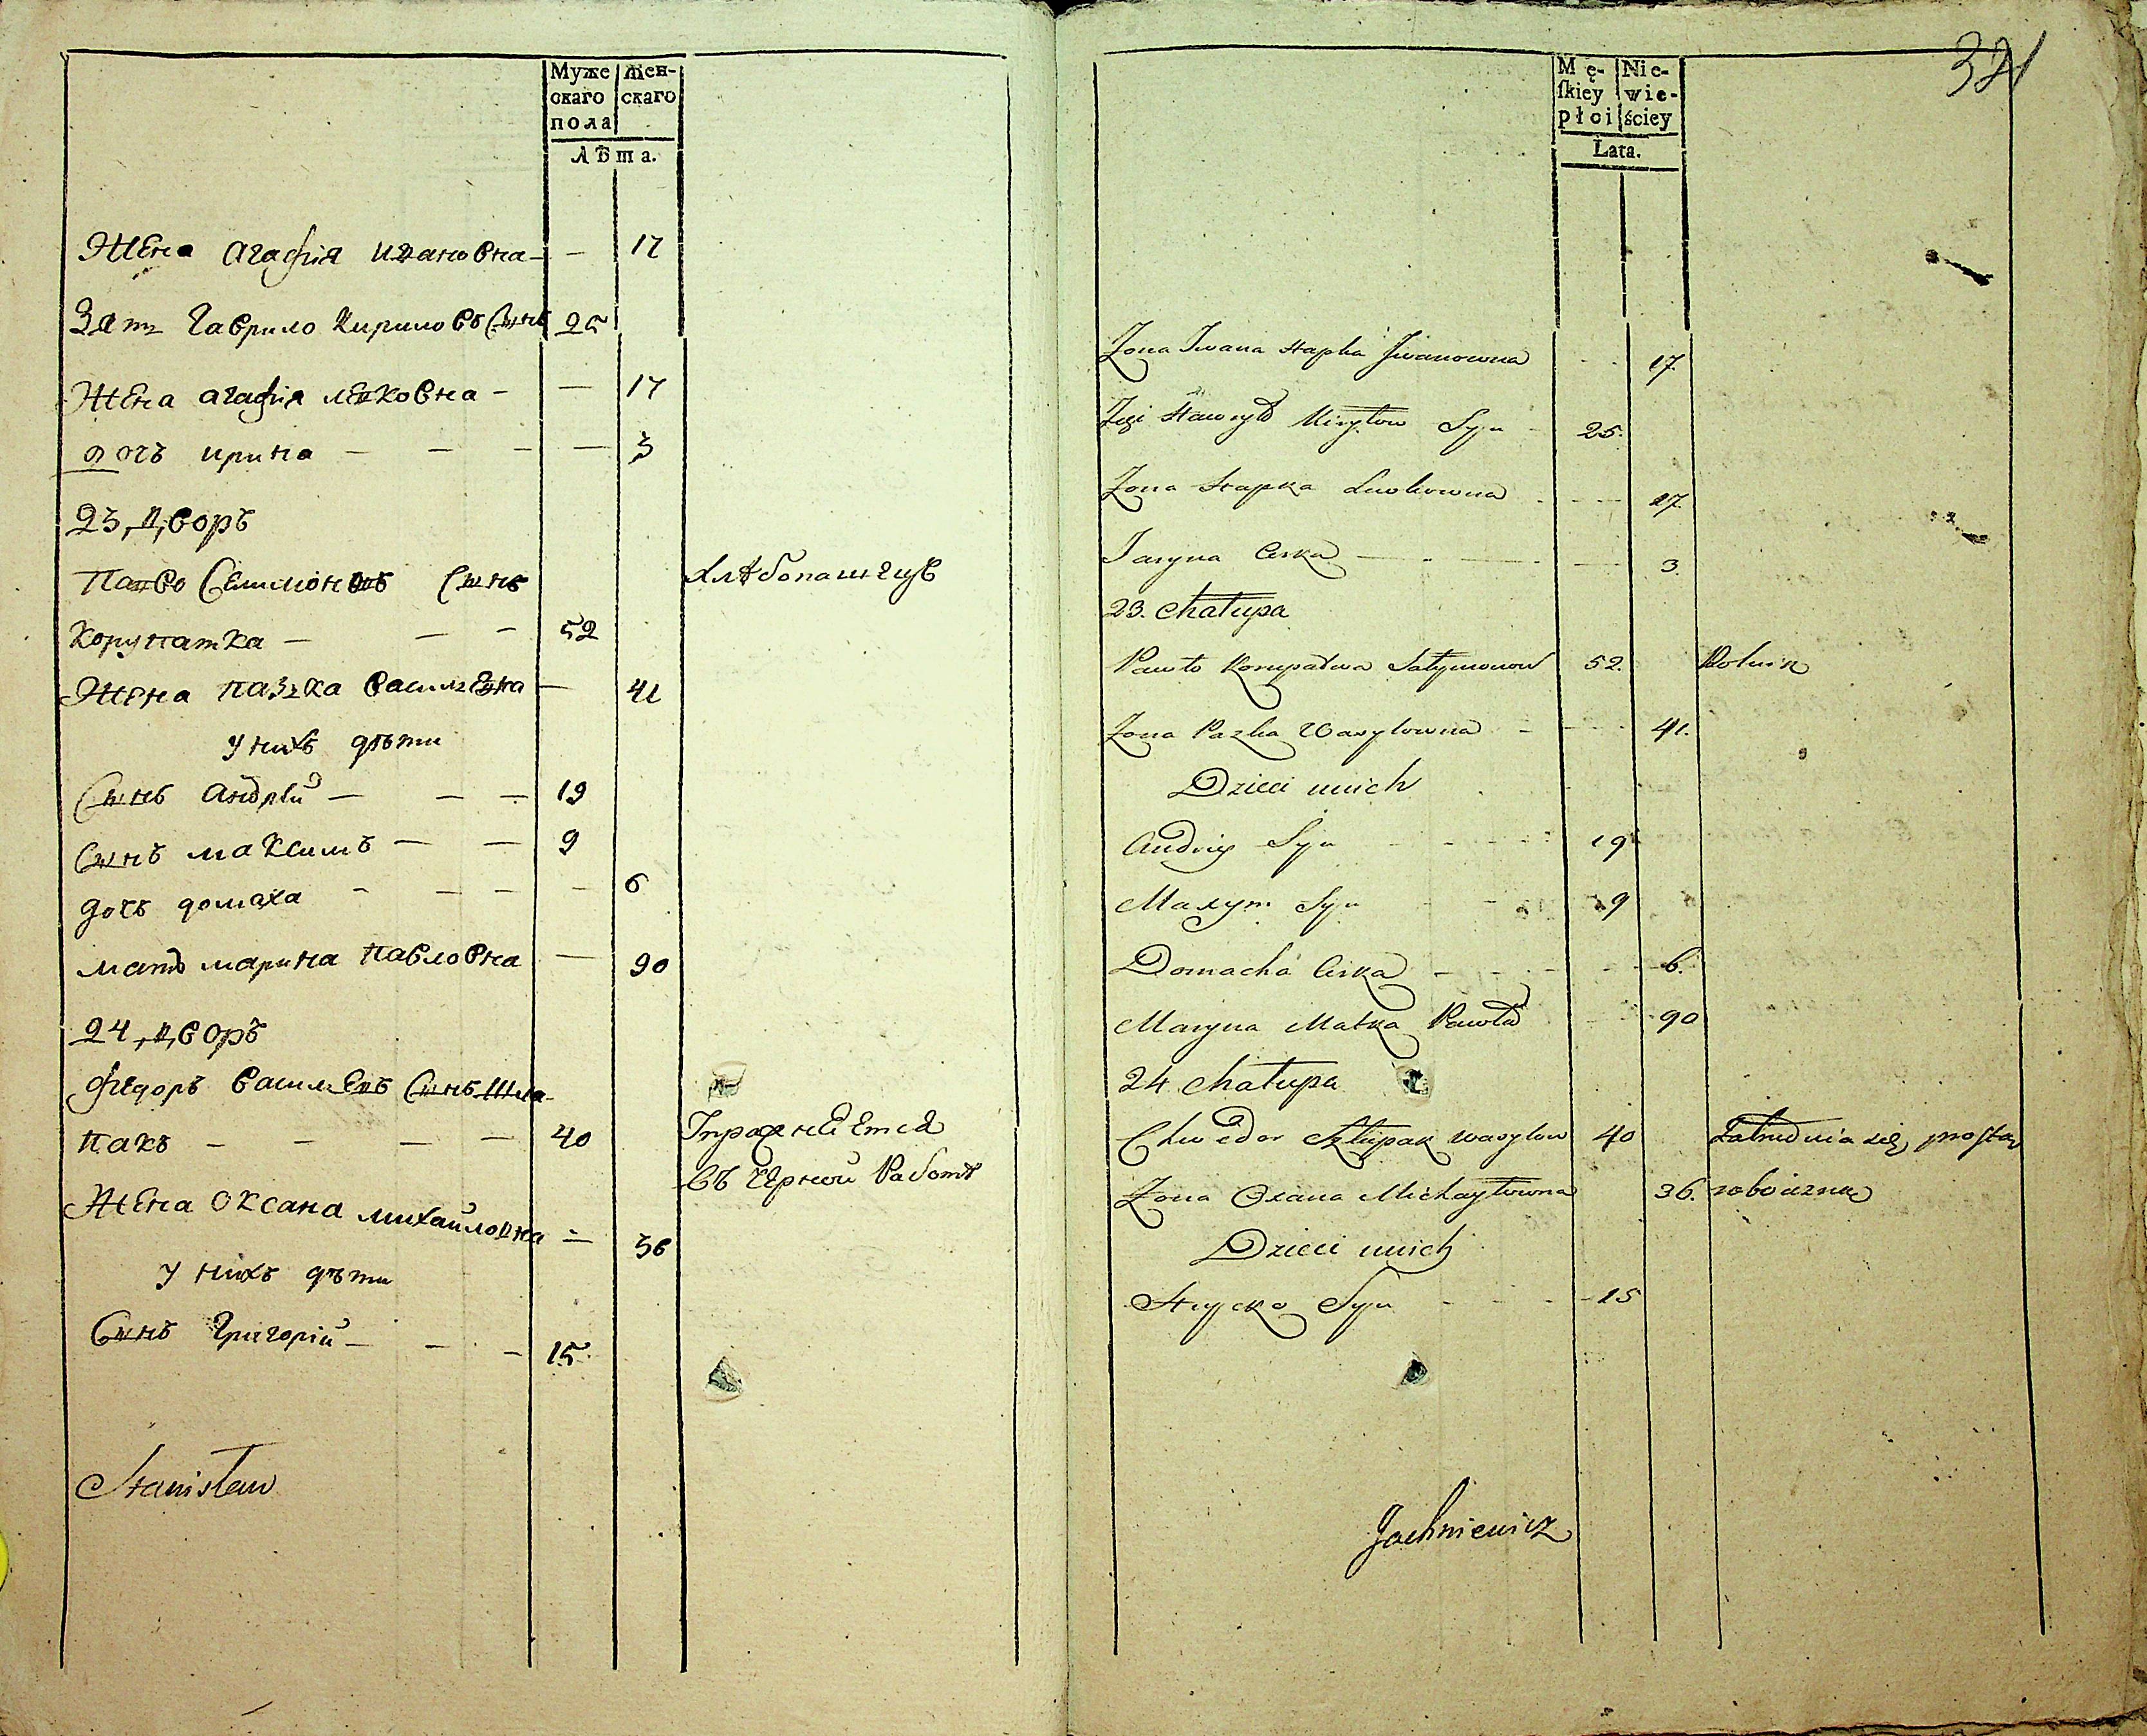 Муже Жен-
скаго скаго
пола
Лѣта.
Жена агафия ивановна — — 17
Зять гаврило кирилювъ Сынъ 25
Жена агафия левковна — — 17
дочъ ирина — — — — 3
23, дворъ
Павло Семионовъ Сынъ хлѣбопашецъ
корупатка — — — 52
Жена пазька василевна — 41
у нихъ дѣти
Сынъ андрѣй — — — 19
Сынъ максимъ — — 9
дочъ домаха — — — — 6
мать марина павловна — 90
24, дворъ
федоръ василевъ Сынъ шлю-
пакъ — — — — 40 Упражняется
въ чермой работѣ
Жена оксана михайловна — 36
у нихъ дѣти
Сынъ григорій — — — 15
Stanisław
321
Mę- Nie-
ſkiey wie-
płci ściey
Lata.
Zona Iwana Hapka Iwanowna 17.
Zięć Hawryło Kiryłow Syn 25.
Zona Hapka Lewkowna 17.
Iaryna Curka — — 3.
23. Chałupa
Pawło Korupatwa Sałymonow 52. Rolnik
Zona Pazka Wasylowna — 41.
Dzieci unich
Andriy Syn 19
Maxym Syn 9
Domacha Curka — 6.
Maryna Matka Pawła 90
24 Chałupa
Chwedor Szlupak wasylow 40 Zatrudnia się prostą
Zona Oxana Michayłowna 36. robocizną
Dzieci unich
Hrycko Syn 15
Jachniewicz